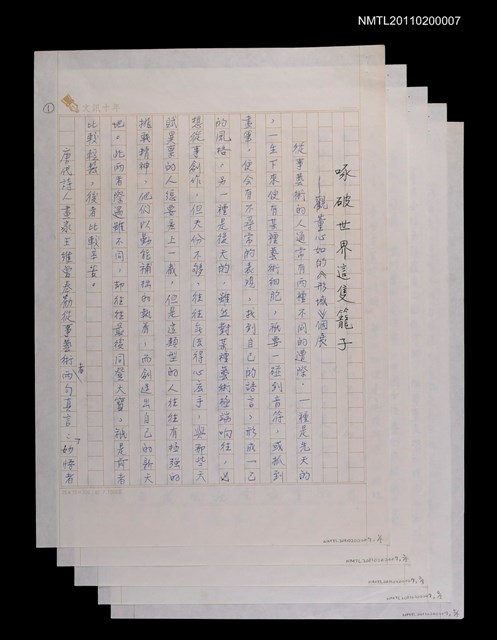 NMTL20110200007
文訊十年
①
啄破世界這隻籠子
──觀董心如的
個展
從事藝術的人通常有兩種不同的遭際,一種是先天的
,一生下來便有某種藝術細胞,祇要一碰到音符,或抓到
畫筆,便會有不尋常的表現,找到自己的語言,形成一己
的風格。另一種是後天的,雖然對某種藝術極端嚮往,也
想從事創作,但天份不夠,往往無法得心應手,與那些天
賦異稟的人總要差上一截。但是這類型的人往往有極強的
挑戰精神,他們以勤能補拙的執著,而創造出自己的新天
地。此兩者際遇雖不同,却往往最後同登大寶,祇是前者
比較輕鬆,後者比較辛苦。
唐代詩人畫家王維曾奉勸從事藝術者兩句真言:「妙悟者